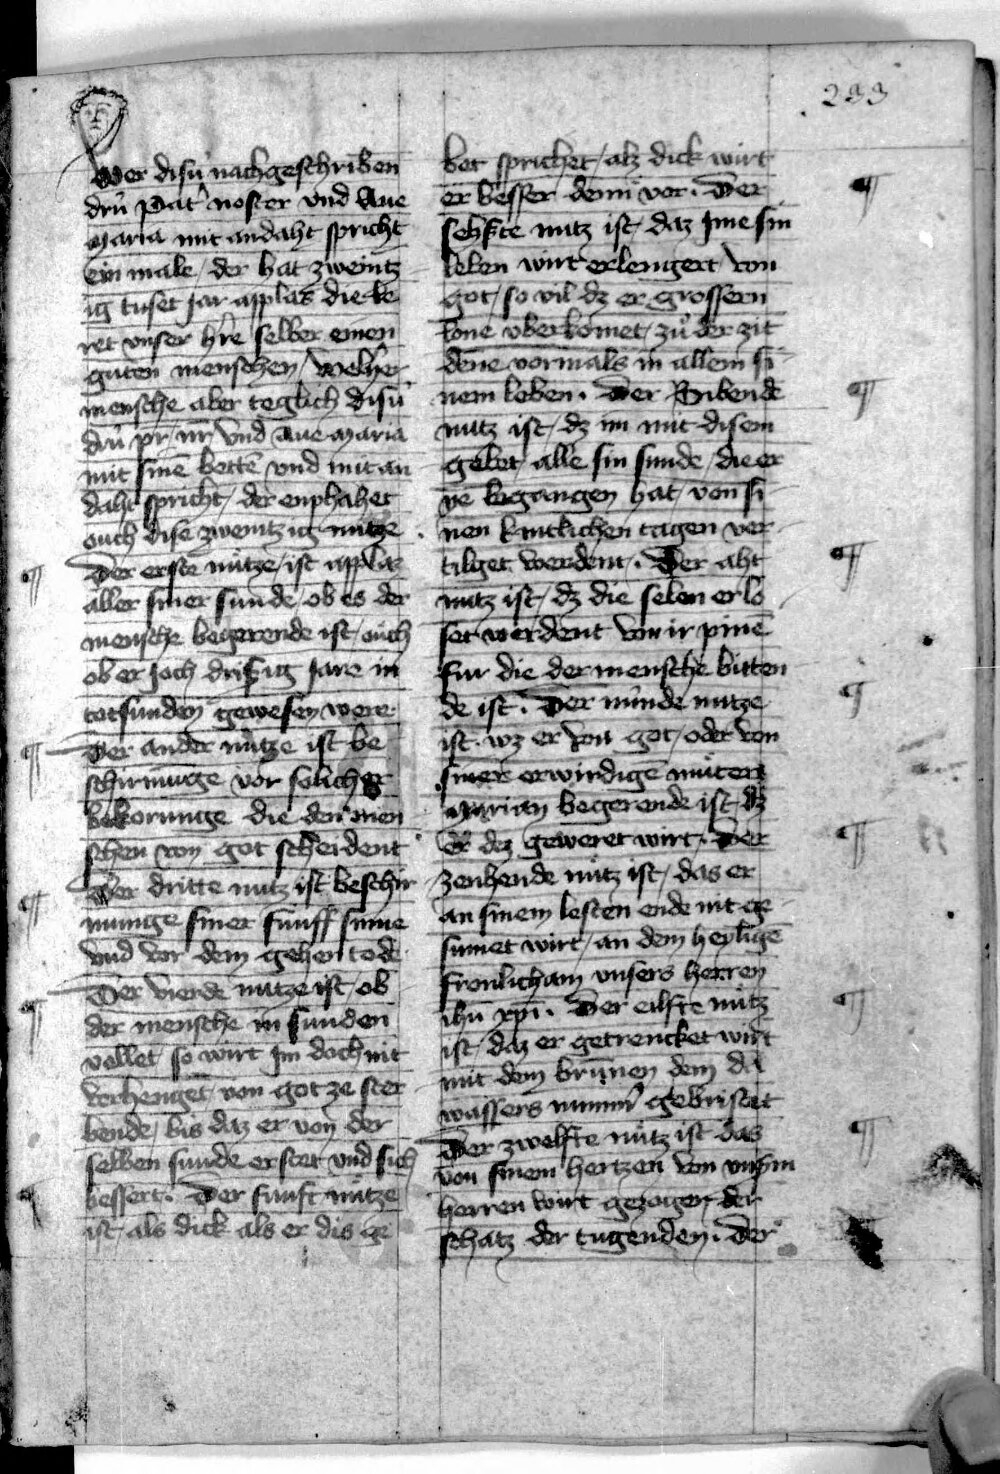 233
Wer disú nachgeschriben
drú pat' noster vnd Aue
maria mit andaht spricht
ein male / der hat zweintz
ig tuset Jar applas die le
ret vnser h're selber einen
guten menschen / Welher
mensche aber teglich disú
drú pr / nr / vnd Aue maria
mit sinē bettē vnd mit an
daht spricht / der enphahet
ouch dise zwentzig nutze .
¶ Der erste nútze / ist applas
aller siner sunde ob es der
mensche begerende ist / ouch
ob er Joch drissig Jare in
totsunden gewesen were
¶ Der ander nútze ist be
schirmunge vor solicher
bekorunge die den men
schen von got scheident
¶ Der dritte nutz ist beschir
munge siner fúnff sinne
vnd vor dem gehen tode
¶ Der vierde nutze ist / ob
der mensche in sunden
vellet / so wirt Jm doch nit
verhenget / von got ze ster
bende / bis daz er von der
selben sunde erstet vnd sich
¶ bessert . Der funft nútze
ist / als dick als er dis ge
bet sprichet / alz dick wirt
er besser denn vor . Der ¶
sehste nutz ist / daz Jme sin
leben wirt erlengert von
got / so vil dz er grossern
lone vberkomet / zů der zit
dene vormals in allem si
nem leben . Der Sibende ¶
nutz ist / dz im mit disem
gebet / alle sin sunde / die er
ye begangen hat / von si
nen kintlichen tagen ver
tilget werdent . Der aht ¶
nutz ist / dz die selen erlo
set werdent von ir pinē
fur die der mensche bitten
de ist . Der núnde nutze ¶
ist . wz er von got / oder von
siner erwirdigē můters
Marian begerende ist dz
Er dez geweret wirt . Der ¶
zenhende nútz ist / das er
an sinem lesten ende nit ge
sumet wirt / an dem heyligē
fronlicham vnsers herren
ihū xpī . Der eilfte nútz ¶
ist / daz er getrencket wirt
mit dem brūnen dem da
wassers nimm' gebristet
Der zwelfte nútz ist das ¶
von sinem hertzen vom vnsm
herren wirt gezogen der
schatz der tugenden . Der